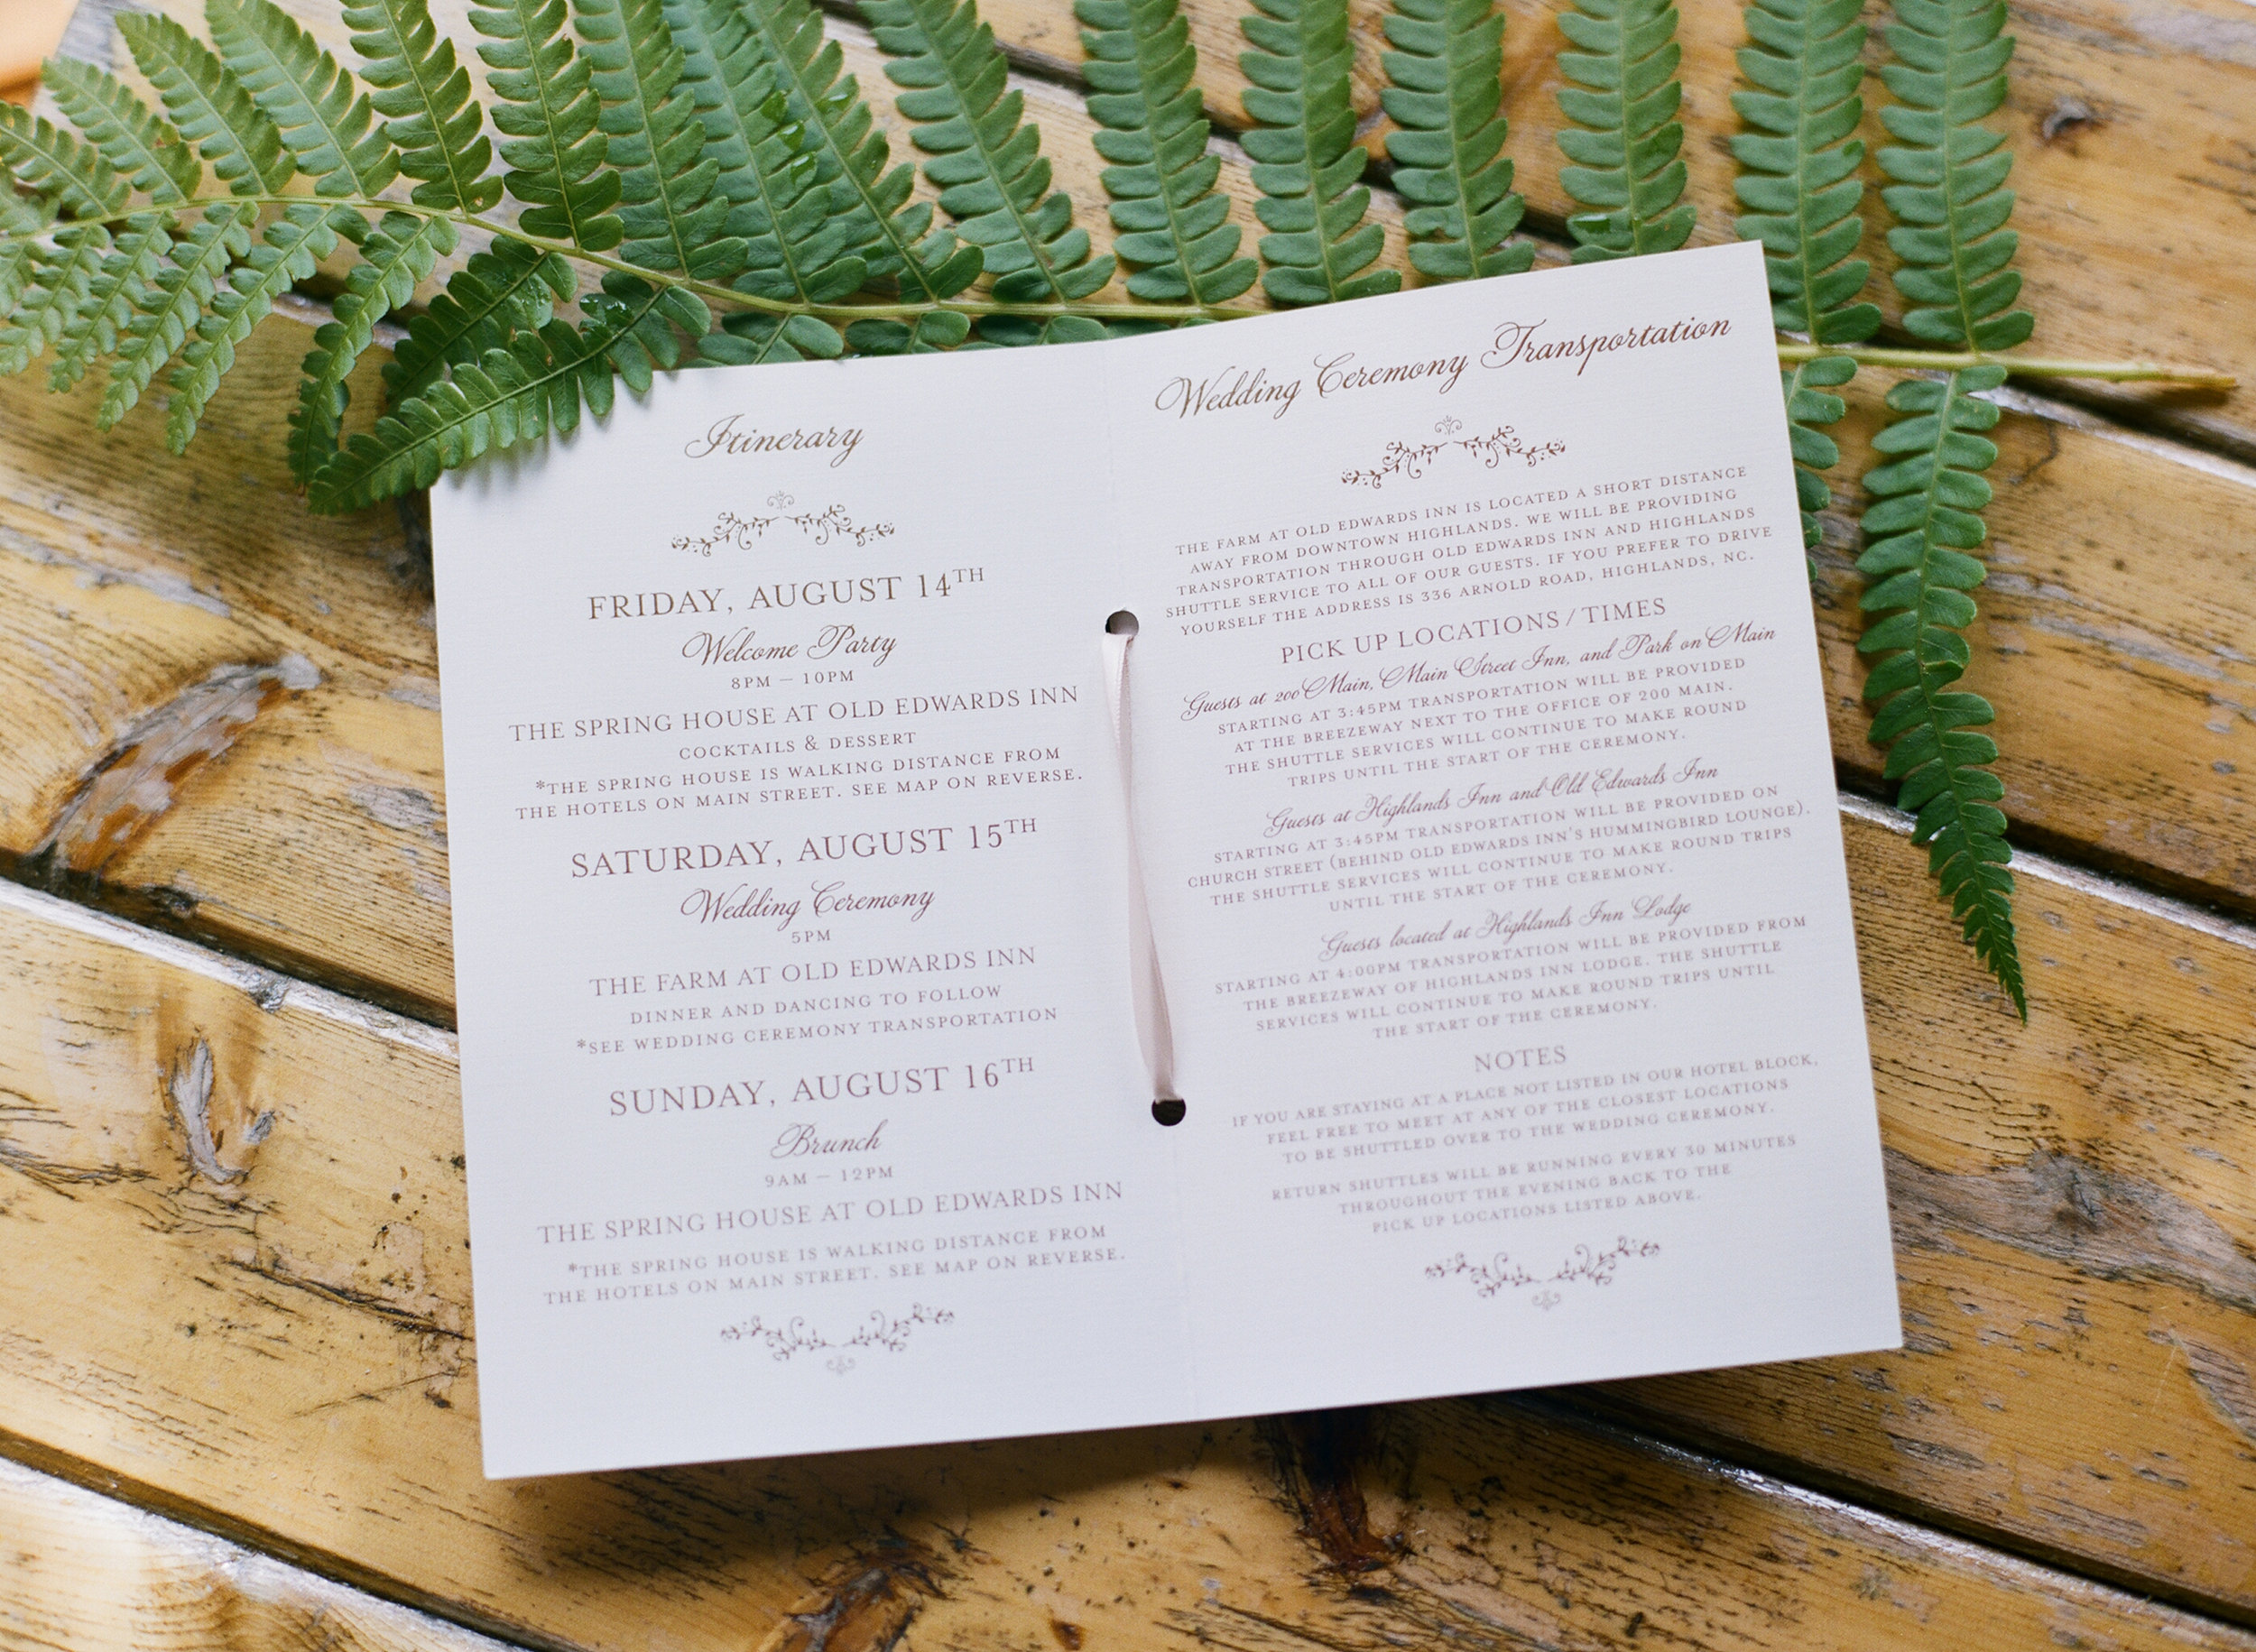 Itinerary
FRIDAY, AUGUST 14TH
Welcome Party
8PM – 10PM
THE SPRING HOUSE AT OLD EDWARDS INN
COCKTAILS & DESSERT
*THE SPRING HOUSE IS WALKING DISTANCE FROM
THE HOTELS ON MAIN STREET. SEE MAP ON REVERSE.
SATURDAY, AUGUST 15TH
Wedding Ceremony
5PM
THE FARM AT OLD EDWARDS INN
DINNER AND DANCING TO FOLLOW
*SEE WEDDING CEREMONY TRANSPORTATION
SUNDAY, AUGUST 16TH
Brunch
9AM – 12PM
THE SPRING HOUSE AT OLD EDWARDS INN
*THE SPRING HOUSE IS WALKING DISTANCE FROM
THE HOTELS ON MAIN STREET. SEE MAP ON REVERSE.
Wedding Ceremony Transportation
THE FARM AT OLD EDWARDS INN IS LOCATED A SHORT DISTANCE
AWAY FROM DOWNTOWN HIGHLANDS. WE WILL BE PROVIDING
TRANSPORTATION THROUGH OLD EDWARDS INN AND HIGHLANDS
SHUTTLE SERVICE TO ALL OF OUR GUESTS. IF YOU PREFER TO DRIVE
YOURSELF THE ADDRESS IS 336 ARNOLD ROAD, HIGHLANDS, NC.
PICK UP LOCATIONS / TIMES
Guests at 200 Main, Main Street Inn, and Park on Main
STARTING AT 3:45PM TRANSPORTATION WILL BE PROVIDED
AT THE BREEZEWAY NEXT TO THE OFFICE OF 200 MAIN.
THE SHUTTLE SERVICES WILL CONTINUE TO MAKE ROUND
TRIPS UNTIL THE START OF THE CEREMONY.
Guests at Highlands Inn and Old Edwards Inn
STARTING AT 3:45PM TRANSPORTATION WILL BE PROVIDED ON
CHURCH STREET (BEHIND OLD EDWARDS INN'S HUMMINGBIRD LOUNGE).
THE SHUTTLE SERVICES WILL CONTINUE TO MAKE ROUND TRIPS
UNTIL THE START OF THE CEREMONY.
Guests located at Highlands Inn Lodge
STARTING AT 4:00PM TRANSPORTATION WILL BE PROVIDED FROM
THE BREEZEWAY OF HIGHLANDS INN LODGE. THE SHUTTLE
SERVICES WILL CONTINUE TO MAKE ROUND TRIPS UNTIL
THE START OF THE CEREMONY.
NOTES
IF YOU ARE STAYING AT A PLACE NOT LISTED IN OUR HOTEL BLOCK,
FEEL FREE TO MEET AT ANY OF THE CLOSEST LOCATIONS
TO BE SHUTTLED OVER TO THE WEDDING CEREMONY.
RETURN SHUTTLES WILL BE RUNNING EVERY 30 MINUTES
THROUGHOUT THE EVENING BACK TO THE
PICK UP LOCATIONS LISTED ABOVE.